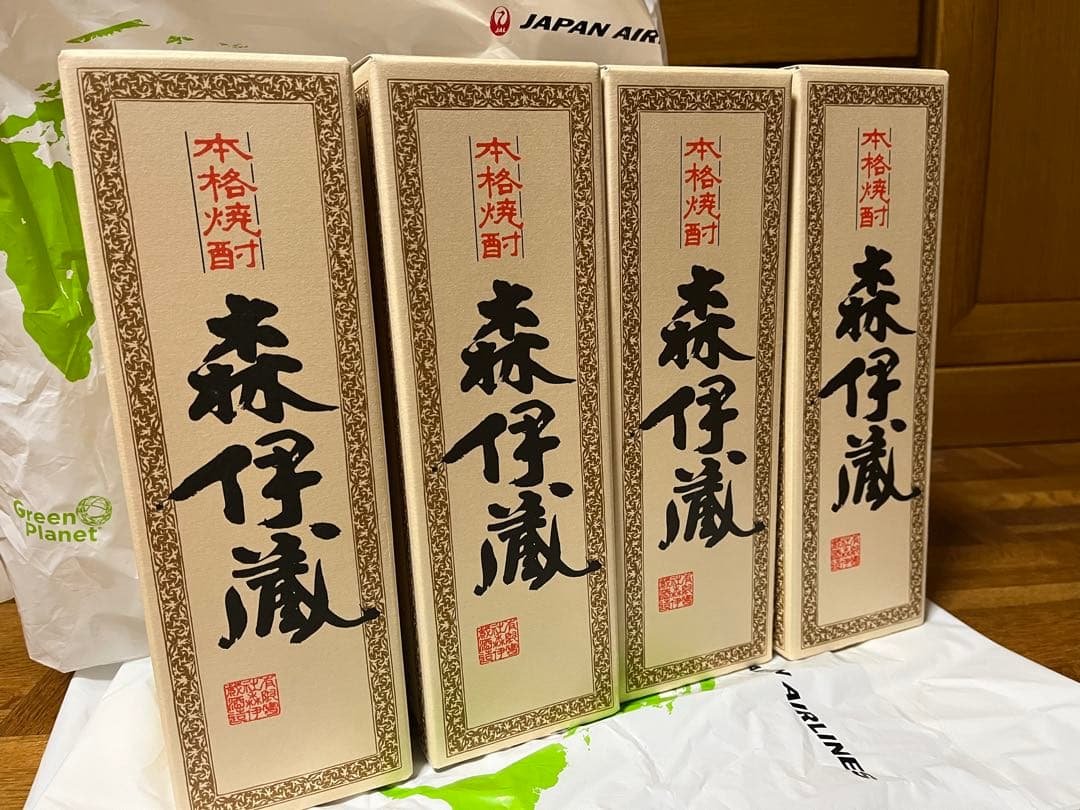 JAL
JAPAN AIR
本格焼酎
森伊蔵
本格焼酎
森伊蔵
本格焼酎
森伊蔵
本格焼酎
森伊蔵
Green
Planet
AIRLINES